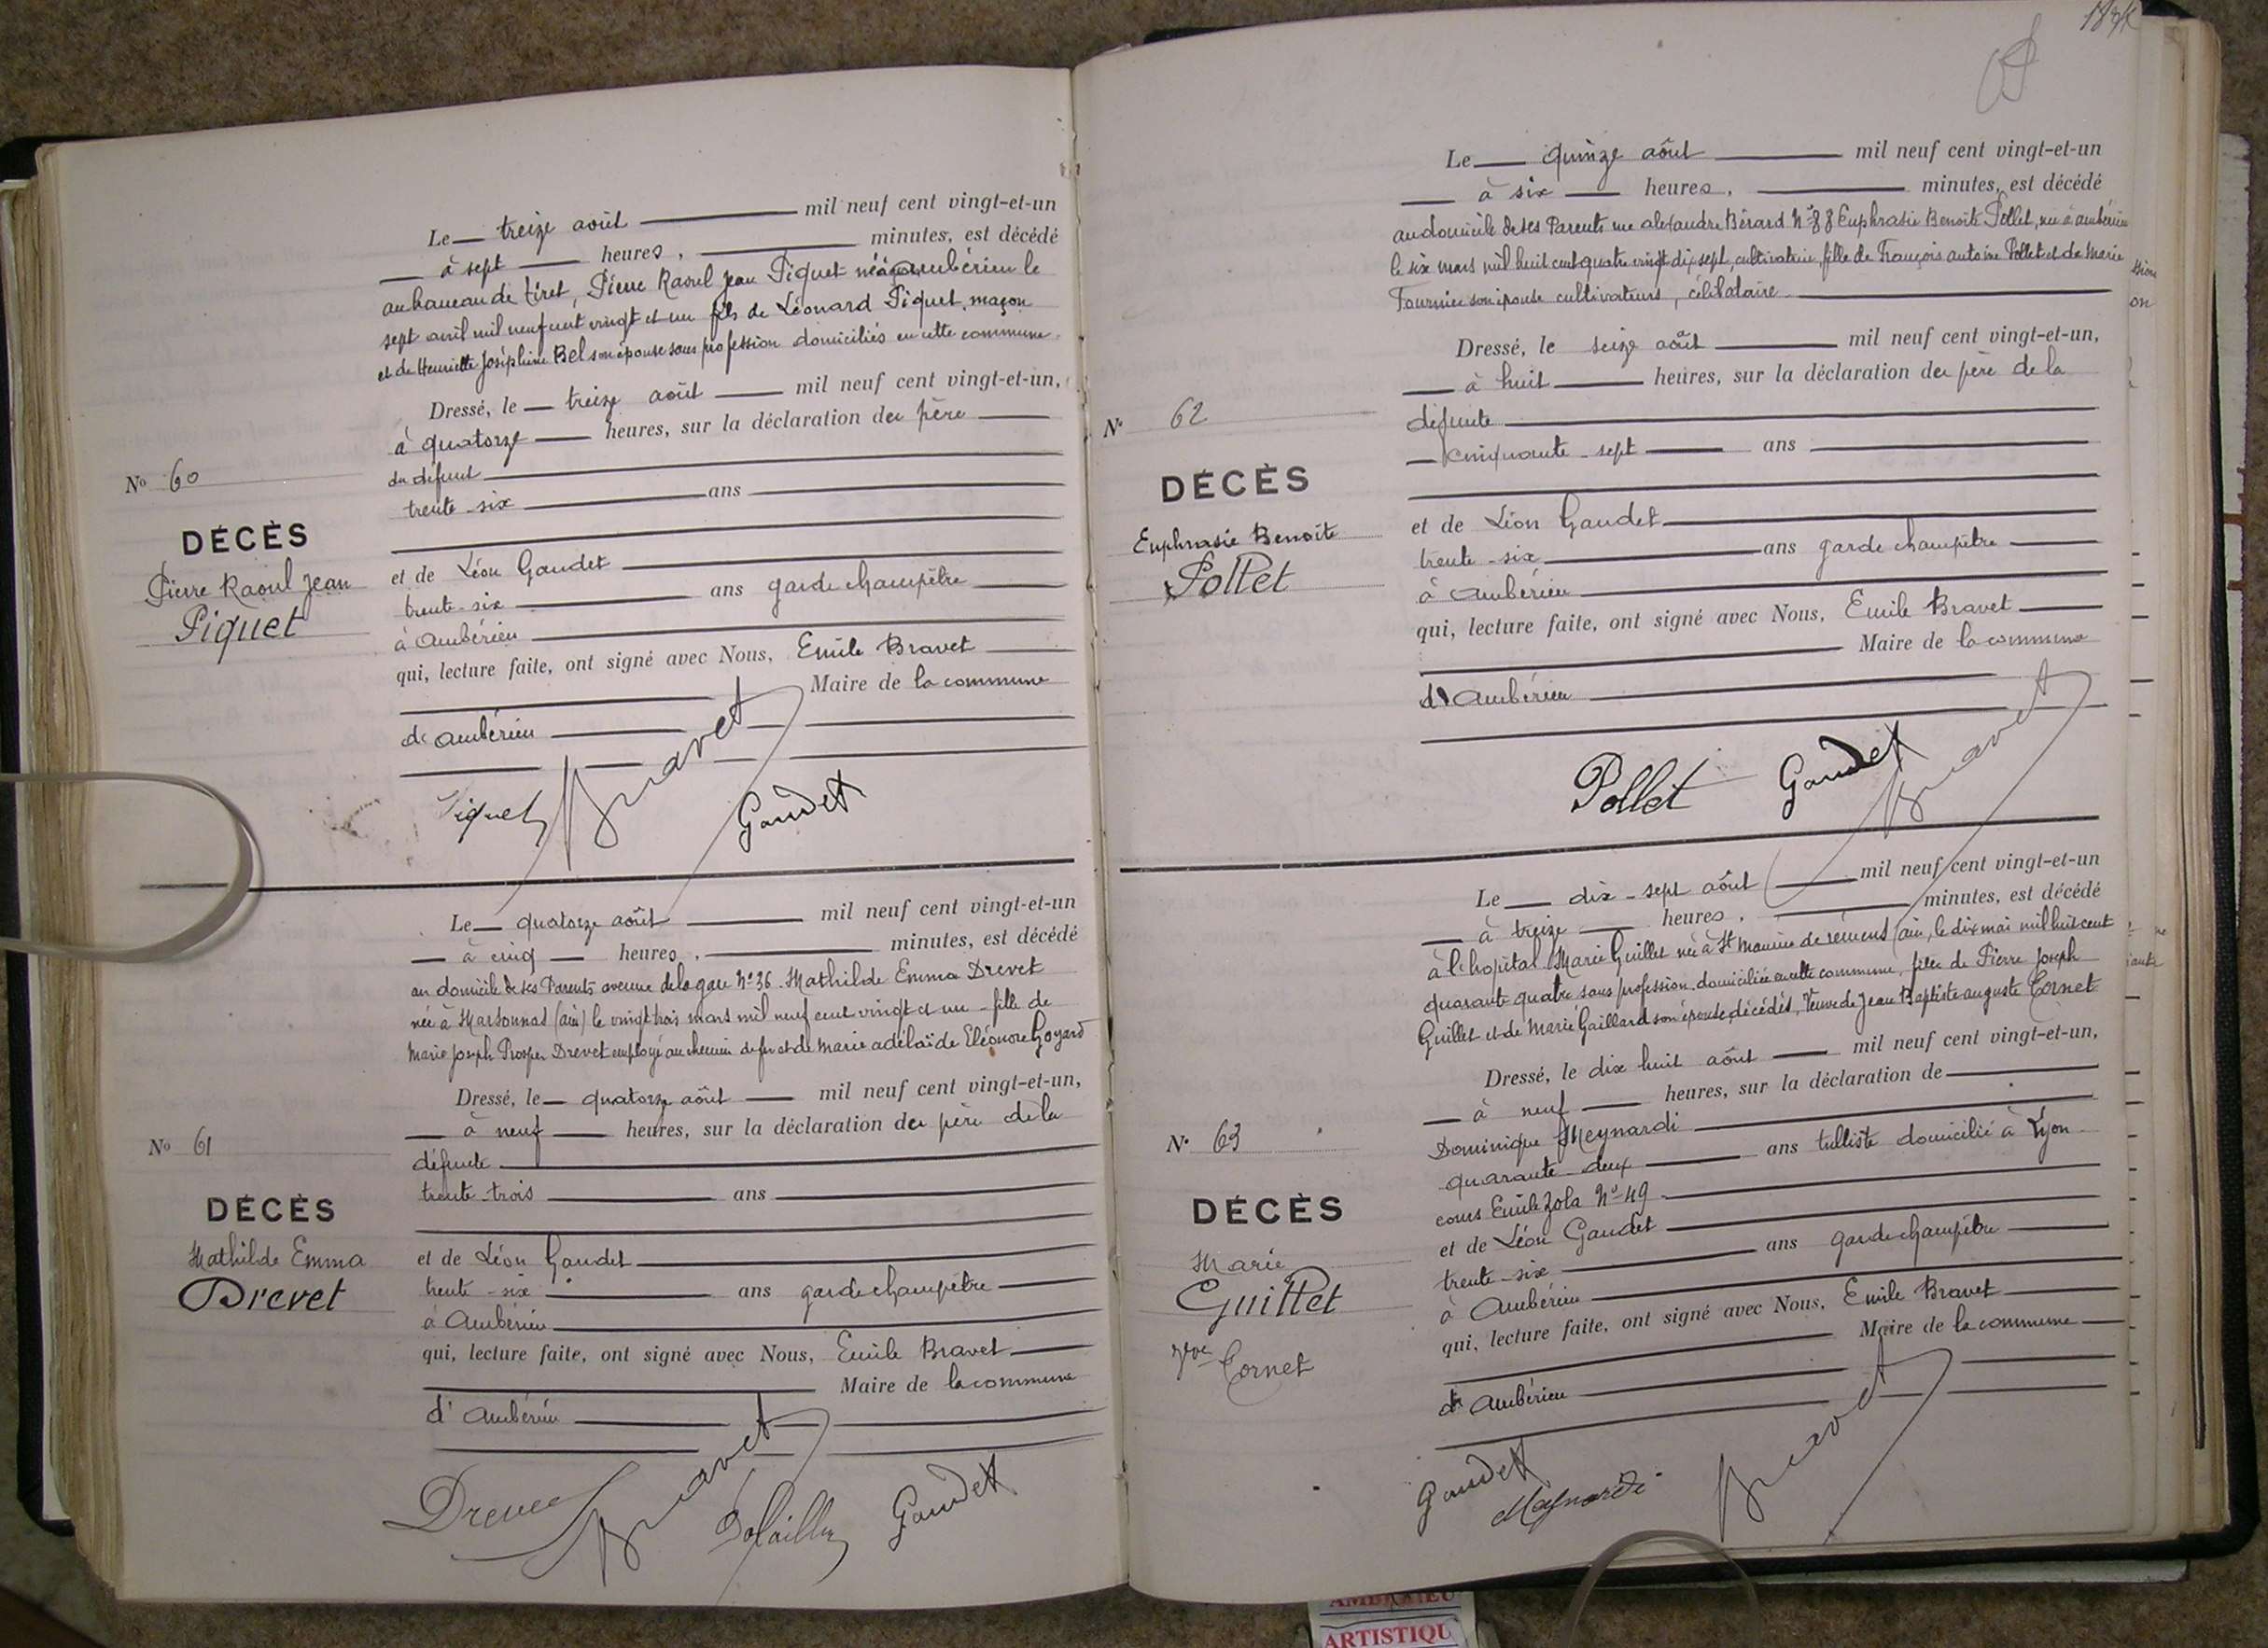 Le treize août mil neuf cent vingt-et-un
à sept heures, minutes, est décédé
au hameau de Tiret, Pierre Raoul Jean Piquet né à Ambérieu le
sept avril mil neuf cent vingt et un fils de Léonard Piquet, maçon
et de Henriette Joséphine Bel son épouse sans profession domiciliés en cette commune.
Dressé, le treize août mil neuf cent vingt-et-un,
à quatorze heures, sur la déclaration du père
du défunt
trente-six ans
et de Léon Gaudet
trente-six ans garde champêtre
à Ambérieu
qui, lecture faite, ont signé avec Nous, Emile Bravet
Maire de la commune
d'Ambérieu
Piquet Bravet Gaudet
No 60
DÉCÈS
Pierre Raoul Jean
Piquet
Le quatorze août mil neuf cent vingt-et-un
à cinq heures, minutes, est décédé
au domicile de ses Parents avenue de la gare No 36. Mathilde Emma Drevet
née à Marsonnas (ain) le vingt trois mars mil neuf cent vingt et un fille de
Marie Joseph Prosper Drevet employé au chemin de fer et de Marie adélaïde Eléonore Goyard
Dressé, le quatorze août mil neuf cent vingt-et-un,
à neuf heures, sur la déclaration du père de la
défunte
trente-trois ans
et de Léon Gaudet
trente-six ans garde champêtre
à Ambérieu
qui, lecture faite, ont signé avec Nous, Emile Bravet
Maire de la commune
d'Ambérieu
Drevet Bravet Gaudet
No 61
DÉCÈS
Mathilde Emma
Drevet
Le quinze août mil neuf cent vingt-et-un
à six heures, minutes, est décédé
au domicile de ses Parents rue alexandre Bérard Euphrasie Benoite Pollet, née à ambérieu
le six mars mil huit cent quatre vingt dix sept, cultivatrice, fille de François antoine Pollet et de Marie
Fournier son épouse cultivateurs, célibataire
Dressé, le seize août mil neuf cent vingt-et-un,
à huit heures, sur la déclaration du père de la
défunte
cinquante-sept ans
et de Léon Gaudet
trente-six ans garde champêtre
à Ambérieu
qui, lecture faite, ont signé avec Nous, Emile Bravet
Maire de la commune
d'Ambérieu
Pollet Gaudet Bravet
No 62
DÉCÈS
Euphrasie Benoite
Pollet
Le dix-sept août mil neuf cent vingt-et-un
à treize heures, minutes, est décédé
à l'hopital Marie Guillet née à St Maurice de rémens (ain, le dix mai mil huit cent
quarante quatre sans profession, domiciliée en cette commune, fille de Pierre Joseph
Guillet et de Marie Gaillard son épouse, décédés, Veuve de Jean Baptiste auguste Cornet
Dressé, le dix huit août mil neuf cent vingt-et-un,
à neuf heures, sur la déclaration de
Dominique Meynardi
quarante-deux ans tulliste domicilié à Lyon
cours Emile Zola No 49
et de Léon Gaudet
trente-six ans garde champêtre
à Ambérieu
qui, lecture faite, ont signé avec Nous, Emile Bravet
Maire de la commune
d'Ambérieu
Gaudet Meynardi Bravet
No 63
DÉCÈS
Marie
Guillet
Vve Cornet
AMBERIEU
ARTISTIQU